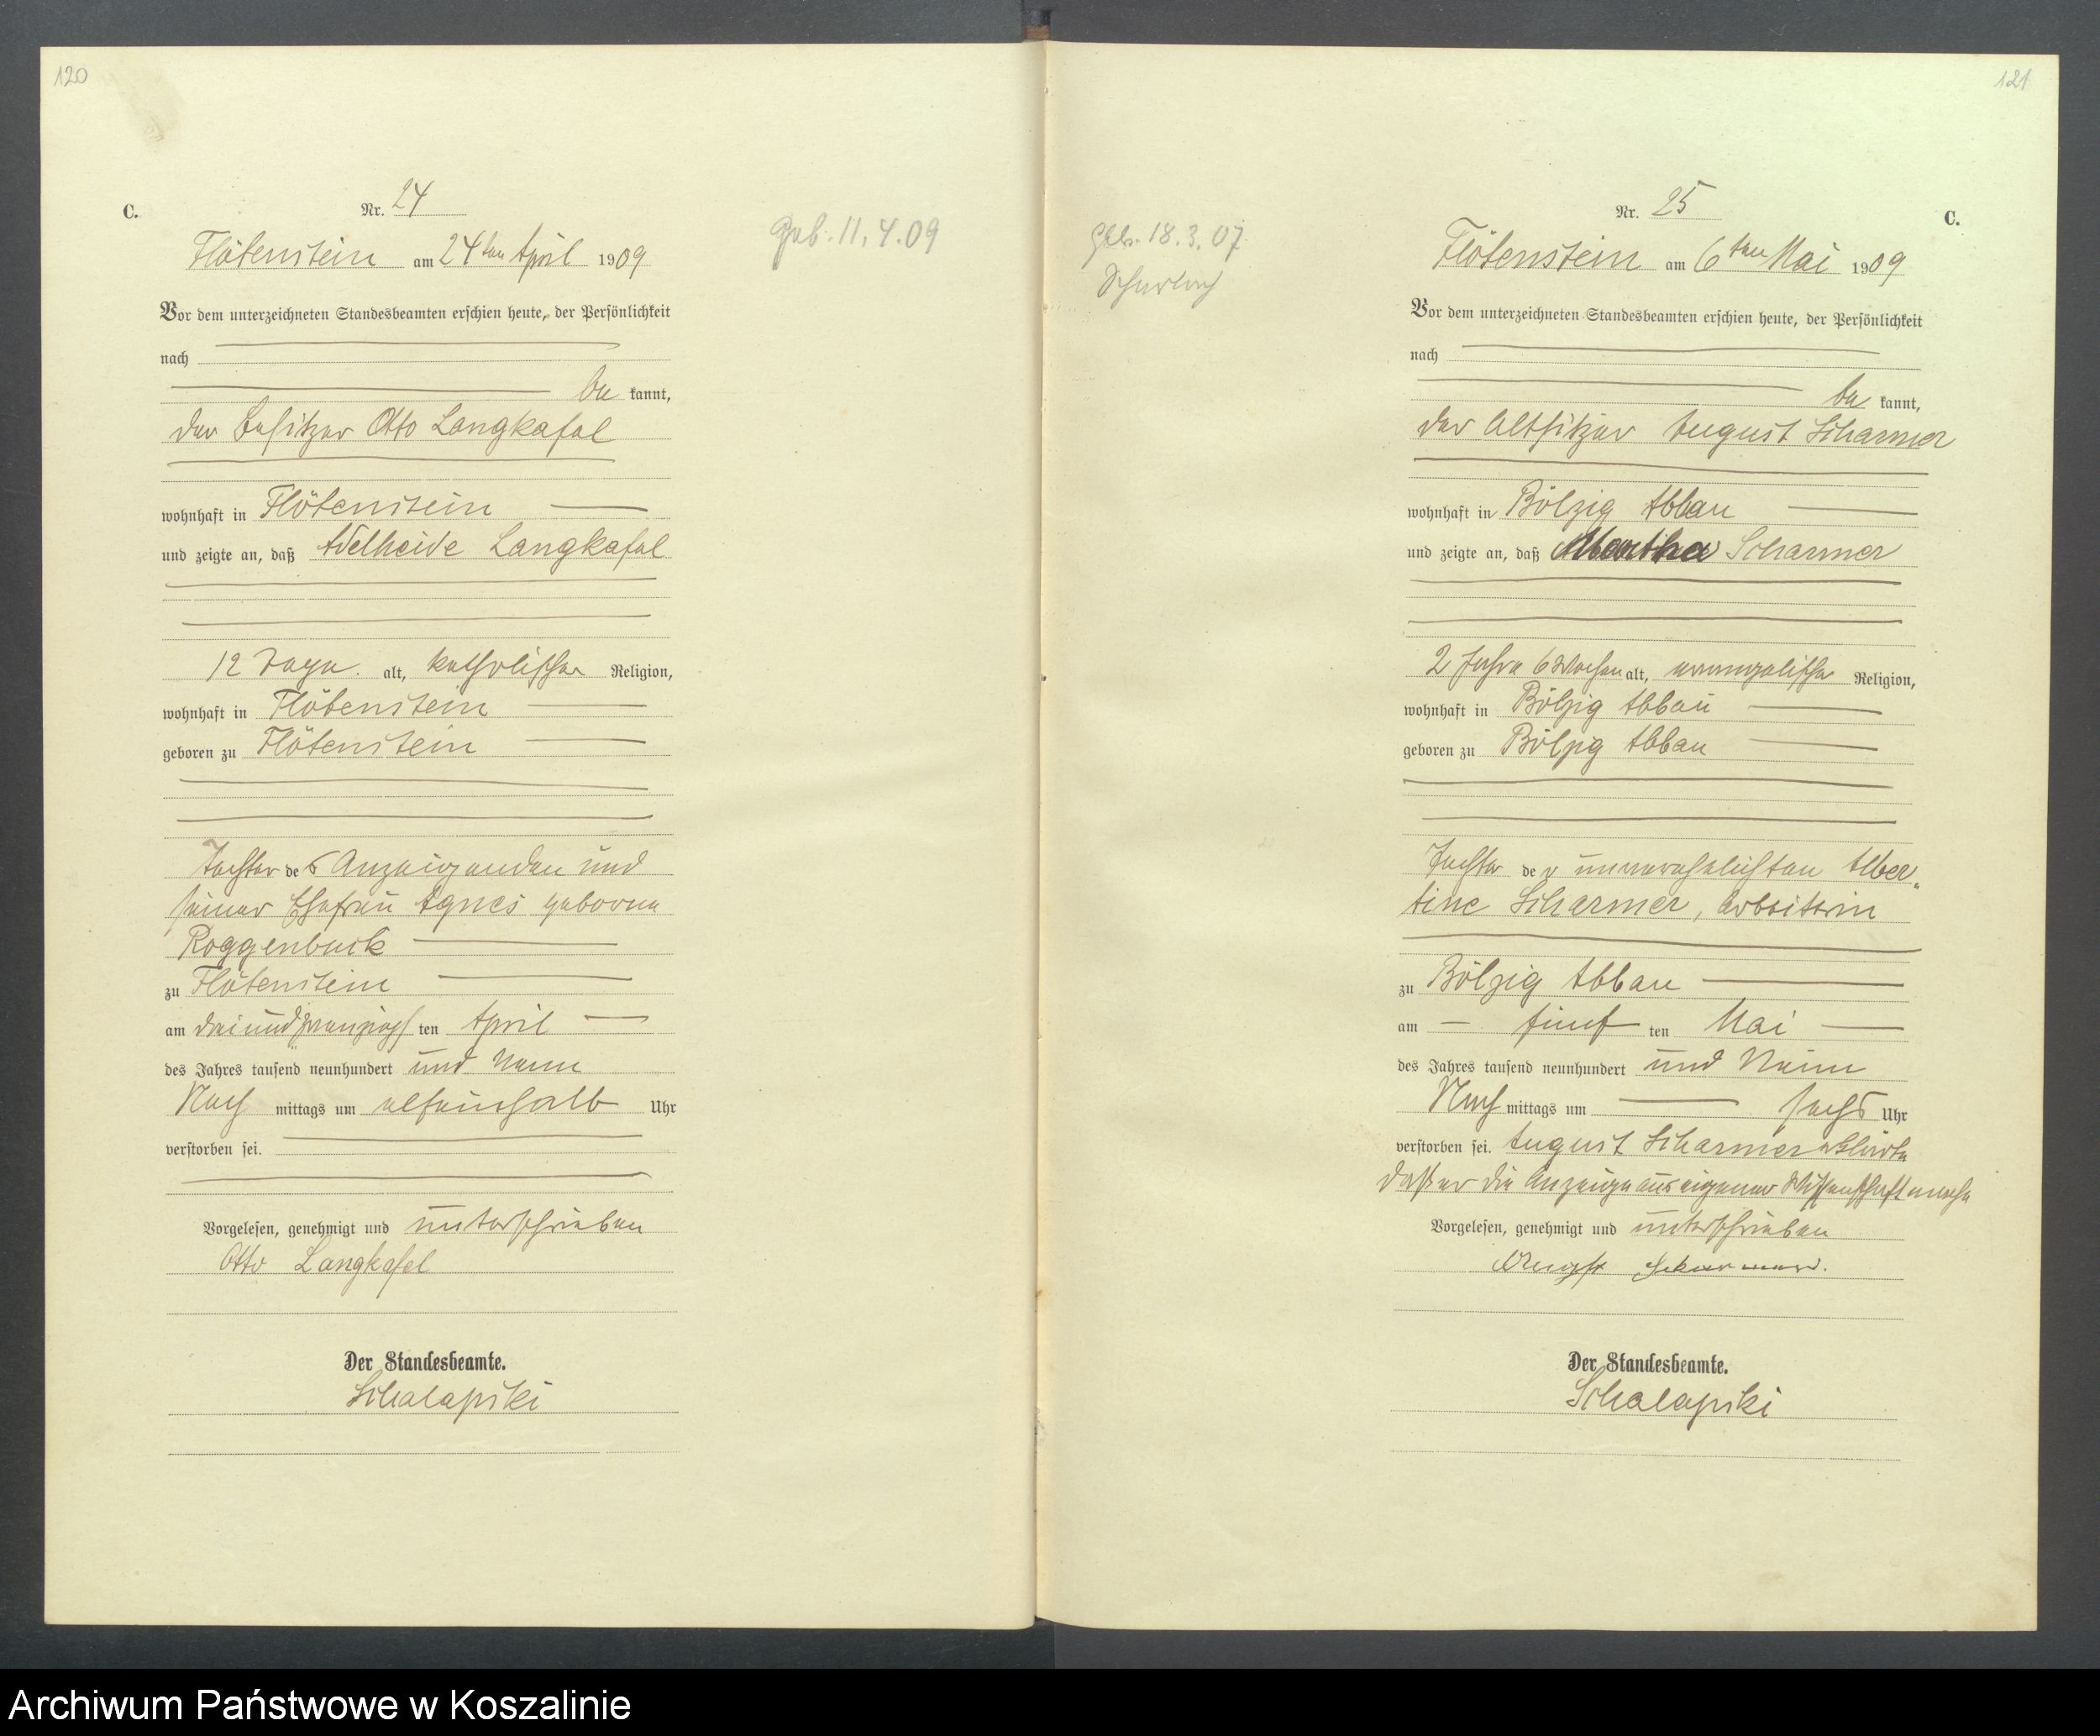 120
C.
Nr. 24
Flötenstein am 24ten April 1909
Vor dem unterzeichneten Standesbeamten erschien heute, der Persönlichkeit
nach
be kannt,
der Besitzer Otto Langkafel
wohnhaft in Flötenstein
und zeigte an, daß Adelheide Langkafel
12 Tage alt, katholischer Religion,
wohnhaft in Flötenstein
geboren zu Flötenstein
Tochter des Anzeigenden und
seiner Ehefrau Agnes geborene
Roggenbuck
zu Flötenstein
am dreiundzwanzigsten April
des Jahres tausend neunhundert und Neun
Nach mittags um elfeinhalb Uhr
verstorben sei.
Vorgelesen, genehmigt und unterschrieben
Otto Langkafel
Der Standesbeamte.
Schalapski
geb. 11.4.09
121
C.
Nr. 25
Geb. 18.3.07
Flötenstein am 6ten Mai 1909
Vor dem unterzeichneten Standesbeamten erschien heute, der Persönlichkeit
nach
be kannt,
der Altsitzer August Scharmer
wohnhaft in Bölzig Abbau
und zeigte an, daß Martha Scharmer
2 Jahre 6 Wochen alt, evangelischer Religion,
wohnhaft in Bölzig Abbau
geboren zu Bölzig Abbau
Tochter der unverehelichten Alber-
tine Scharmer, Arbeiterin
zu Bölzig Abbau
am fünf ten Mai
des Jahres tausend neunhundert und Neun
Nach mittags um sechs Uhr
verstorben sei. August Scharmer erklärte
daß er die Anzeige aus eigener Wissenschaft mache
Vorgelesen, genehmigt und unterschrieben
August
Der Standesbeamte.
Schalapski
Archiwum Państwowe w Koszalinie